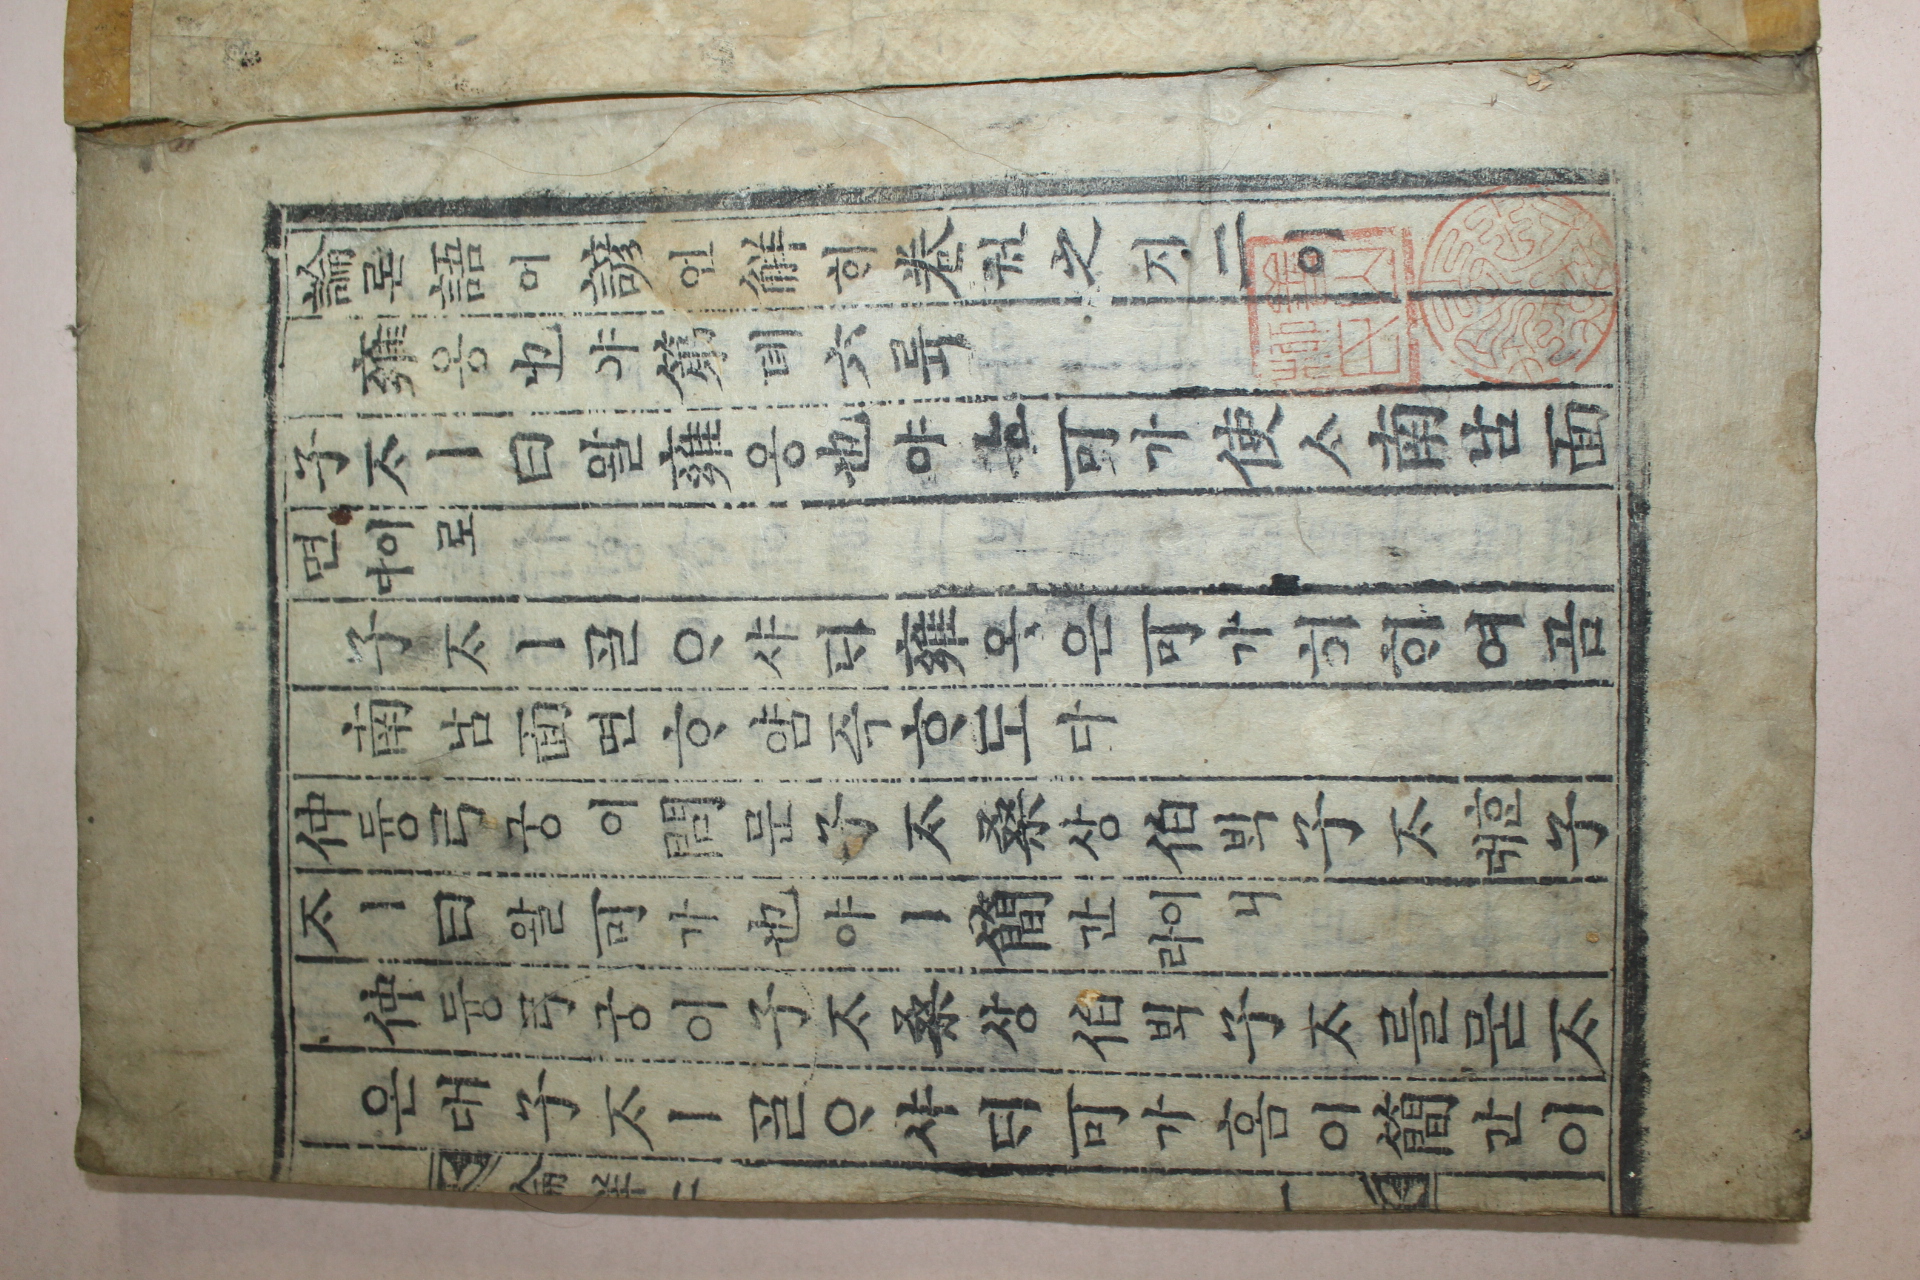 論론語어諺언解ᄒᆡ卷권之지二이
雍옹也야第뎨六륙
子ᄌᆞㅣ曰왈雍옹也야ᄂᆞᆫ可가使ᄉᆞ南남面
면이로다
子ᄌᆞㅣᄀᆞᆯᄋᆞ샤ᄃᆡ雍옹은可가히ᄒᆞ여곰
南남面면ᄒᆞ암즉ᄒᆞ도다
仲듕弓궁이問문子ᄌᆞ桑상伯ᄇᆡᆨ子ᄌᆞᄒᆞᆫ대子
ᄌᆞㅣ曰왈可가也야ㅣ簡간이니라
仲듕弓궁이子ᄌᆞ桑상伯ᄇᆡᆨ子ᄌᆞ를묻ᄌᆞ
온대子ᄌᆞㅣᄀᆞᆯᄋᆞ샤ᄃᆡ可가홈이簡간이
論解二 一